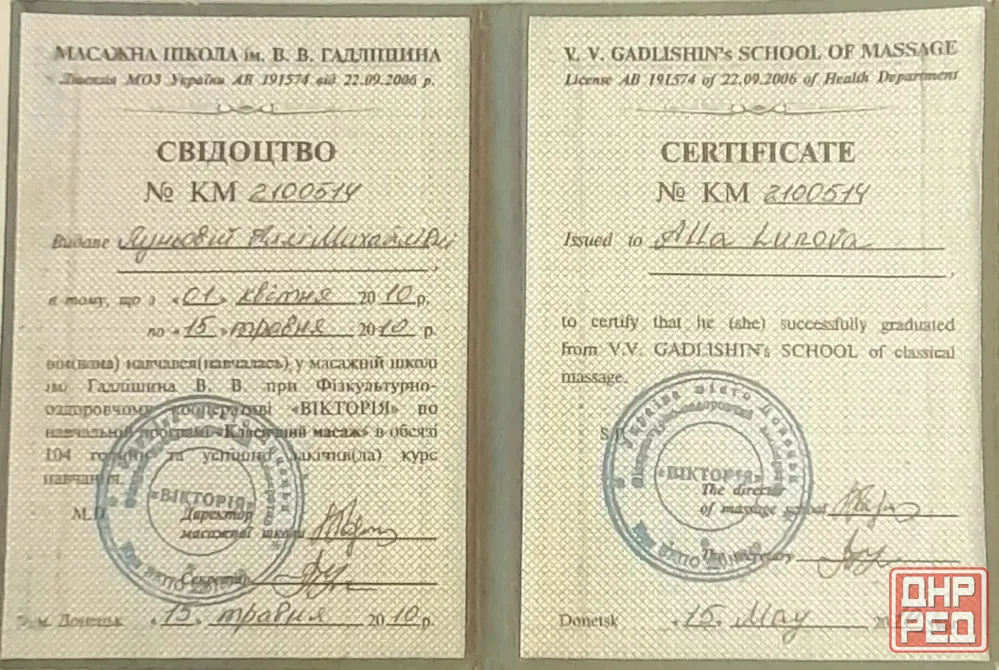 МАСАЖНА ШКОЛА ім. В. В. ГАДЛІШИНА
Ліцензія МОЗ України АВ 191574 від 22.09.2006 р.
СВІДОЦТВО
№ КМ 2100514
Видане Луньовій Аллі Михайлівні
в тому, що з «01» квітня 2010 р.
по «15» травня 2010 р.
він(вона) навчався(навчалась) у масажній школі
ім Гадлішина В. В. при Фізкультурно-
оздоровчому кооперативі «ВІКТОРІЯ» по
навчальній програмі «Класичний масаж» в обсязі
104 годин та успішно закінчив(ла) курс
навчання.
«ВІКТОРІЯ»
М.П.
Директор
масажної школи
Секретар
м. Донецьк «15» травня 2010 р.
V. V. GADLISHIN's SCHOOL OF MASSAGE
License AB 191574 of 22.09.2006 of Health Department
CERTIFICATE
№ KM 2100514
Issued to Alla Lunova
to certify that he (she) successfully graduated
from V.V. GADLISHIN's SCHOOL of classical
massage.
Україна місто Донецьк
«ВІКТОРІЯ»
The director
of massage school
The secretary
Donetsk «15» May
ДНР
РЕД